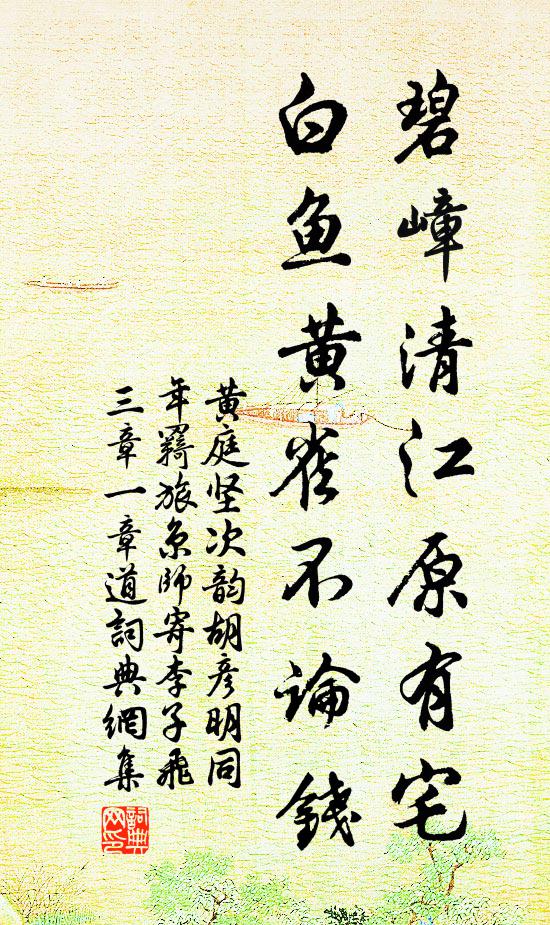 碧嶂清江原有宅
白鱼黄雀不论錢
黄庭坚次韵胡彦明同
年羇旅京師寄李子飛
三章一章道詞典網集
詞典
网印